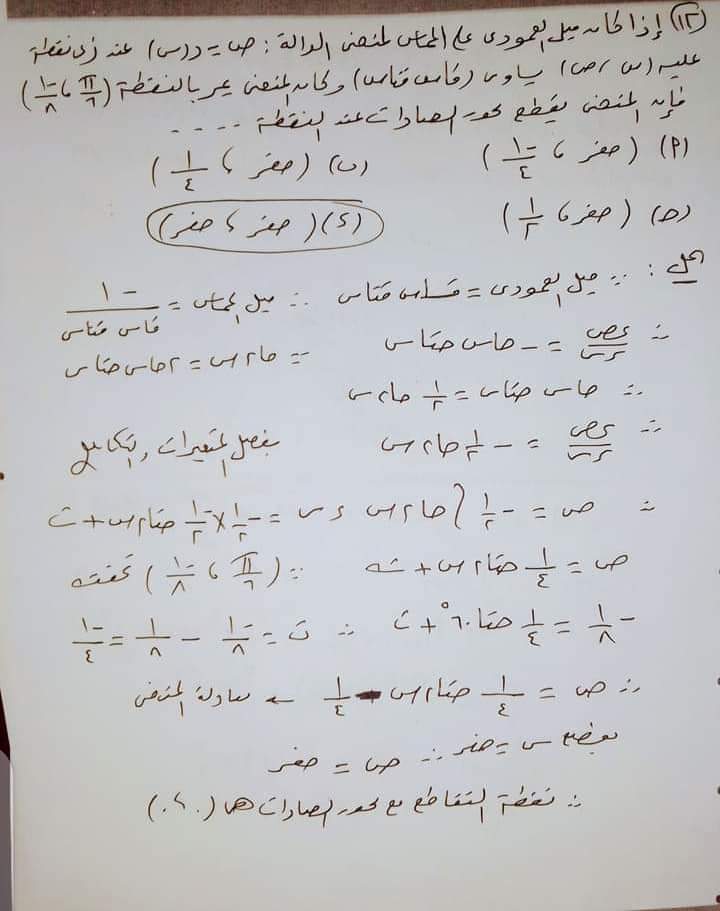 (١٢) إذا كان ميل العمودى على المماس لمنحنى الدالة : ص = د(س) عند أى نقطة
عليه (س ، ص) يساوى (قاس قتاس) وكان المنحنى يمر بالنقطة (π/٦ ، -١/٨)
فإن المنحنى يقطع محور الصادات عند النقطة . . . .
(٩) (صفر ، -١/٤) (ب) (صفر ، ١/٤)
(ح) (صفر ، ١/٢) (د) (صفر ، صفر)
الحل : ∵ ميل العمودى = قاس قتاس ∴ ميل المماس = -١/قاس قتاس
∴ ءص/ءس = - جاس جتاس ∵ جا٢س = ٢جاس جتاس
∴ جاس جتاس = ١/٢ جا٢س
∴ ءص/ءس = -١/٢ جا٢س بفصل المتغيرات والتكامل
∴ ص = -١/٢ ∫ جا٢س ءس = -١/٢ × -١/٢ جتا٢س + ث
ص = ١/٤ جتا٢س + ث ∵ (π/٦ ، -١/٨) تحققه
-١/٨ = ١/٤ جتا٦٠° + ث ∴ ث = -١/٨ - ١/٨ = -١/٤
∴ ص = ١/٤ جتا٢س - ١/٤ ← معادلة المنحنى
بوضع س = صفر ∴ ص = صفر
∴ نقطة التقاطع مع محور الصادات هى (٠،٠)